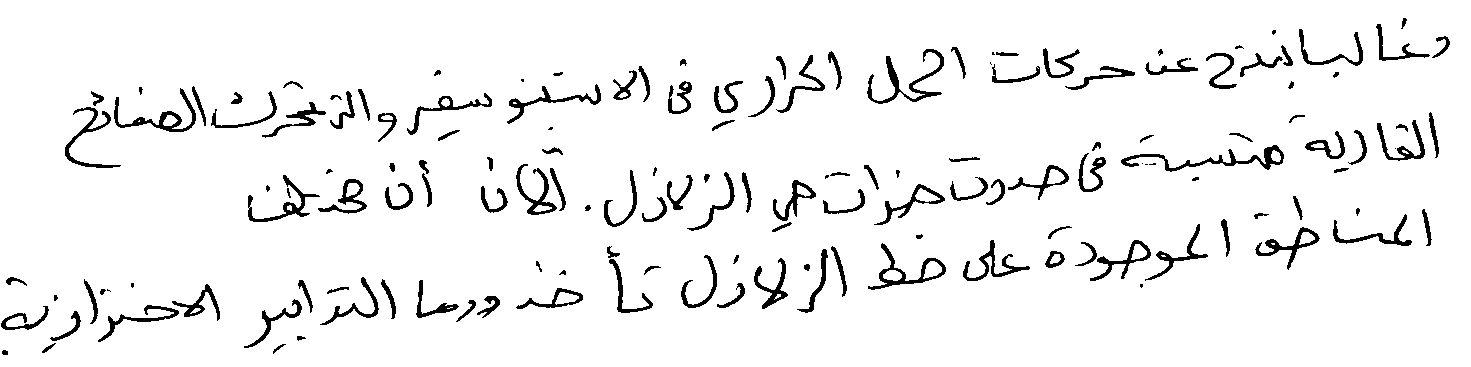 وغالبا ينتج عن حركات الحمل الحراري في الاستينوسفير والتي تحرك الصفائح
القارية متسببة في حدوث هزات هي الزلازل. كما أن مختلف
المناطق الموجودة على خط الزلازل تأخذ دوما التدابير الاحترازية